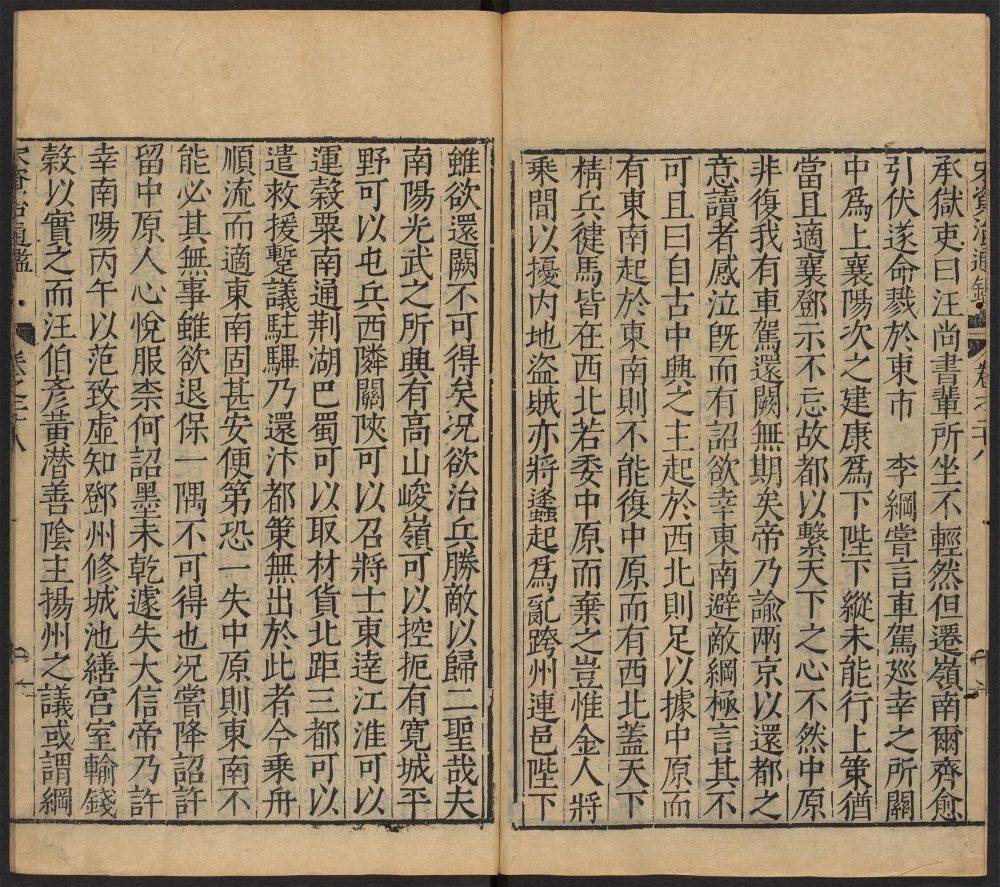 承獄吏曰汪尚書輩所坐不輕然但遷嶺南爾齊愈
引伏遂命戮於東市　李綱嘗言車駕巡幸之所關
中爲上襄陽次之建康爲下陛下縱未能行上策猶
當且適襄鄧示不忘故都以繫天下之心不然中原
非復我有車駕還闕無期矣帝乃諭兩京以還都之
意讀者感泣旣而有詔欲幸東南避敵綱極言其不
可且曰自古中興之主起於西北則足以據中原而
有東南起於東南則不能復中原而有西北蓋天下
精兵健馬皆在西北若委中原而棄之豈惟金人將
乘間以擾內地盜賊亦將蠭起爲亂跨州連邑陛下
雖欲還闕不可得矣况欲治兵勝敵以歸二聖哉夫
南陽光武之所興有高山峻嶺可以控扼有寬城平
野可以屯兵西隣關陝可以召將士東達江淮可以
運穀粟南通荆湖巴蜀可以取材貨北距三都可以
遣救援蹔議駐驆乃還汴都策無出於此者今乗舟
順流而適東南固甚安便第恐一失中原則東南不
能必其無事雖欲退保一隅不可得也况嘗降詔許
留中原人心悅服柰何詔墨未乾遽失大信帝乃許
幸南陽丙午以范致虛知鄧州修城池繕宮室輸錢
穀以實之而汪伯彥黃潛善陰主揚州之議或謂綱